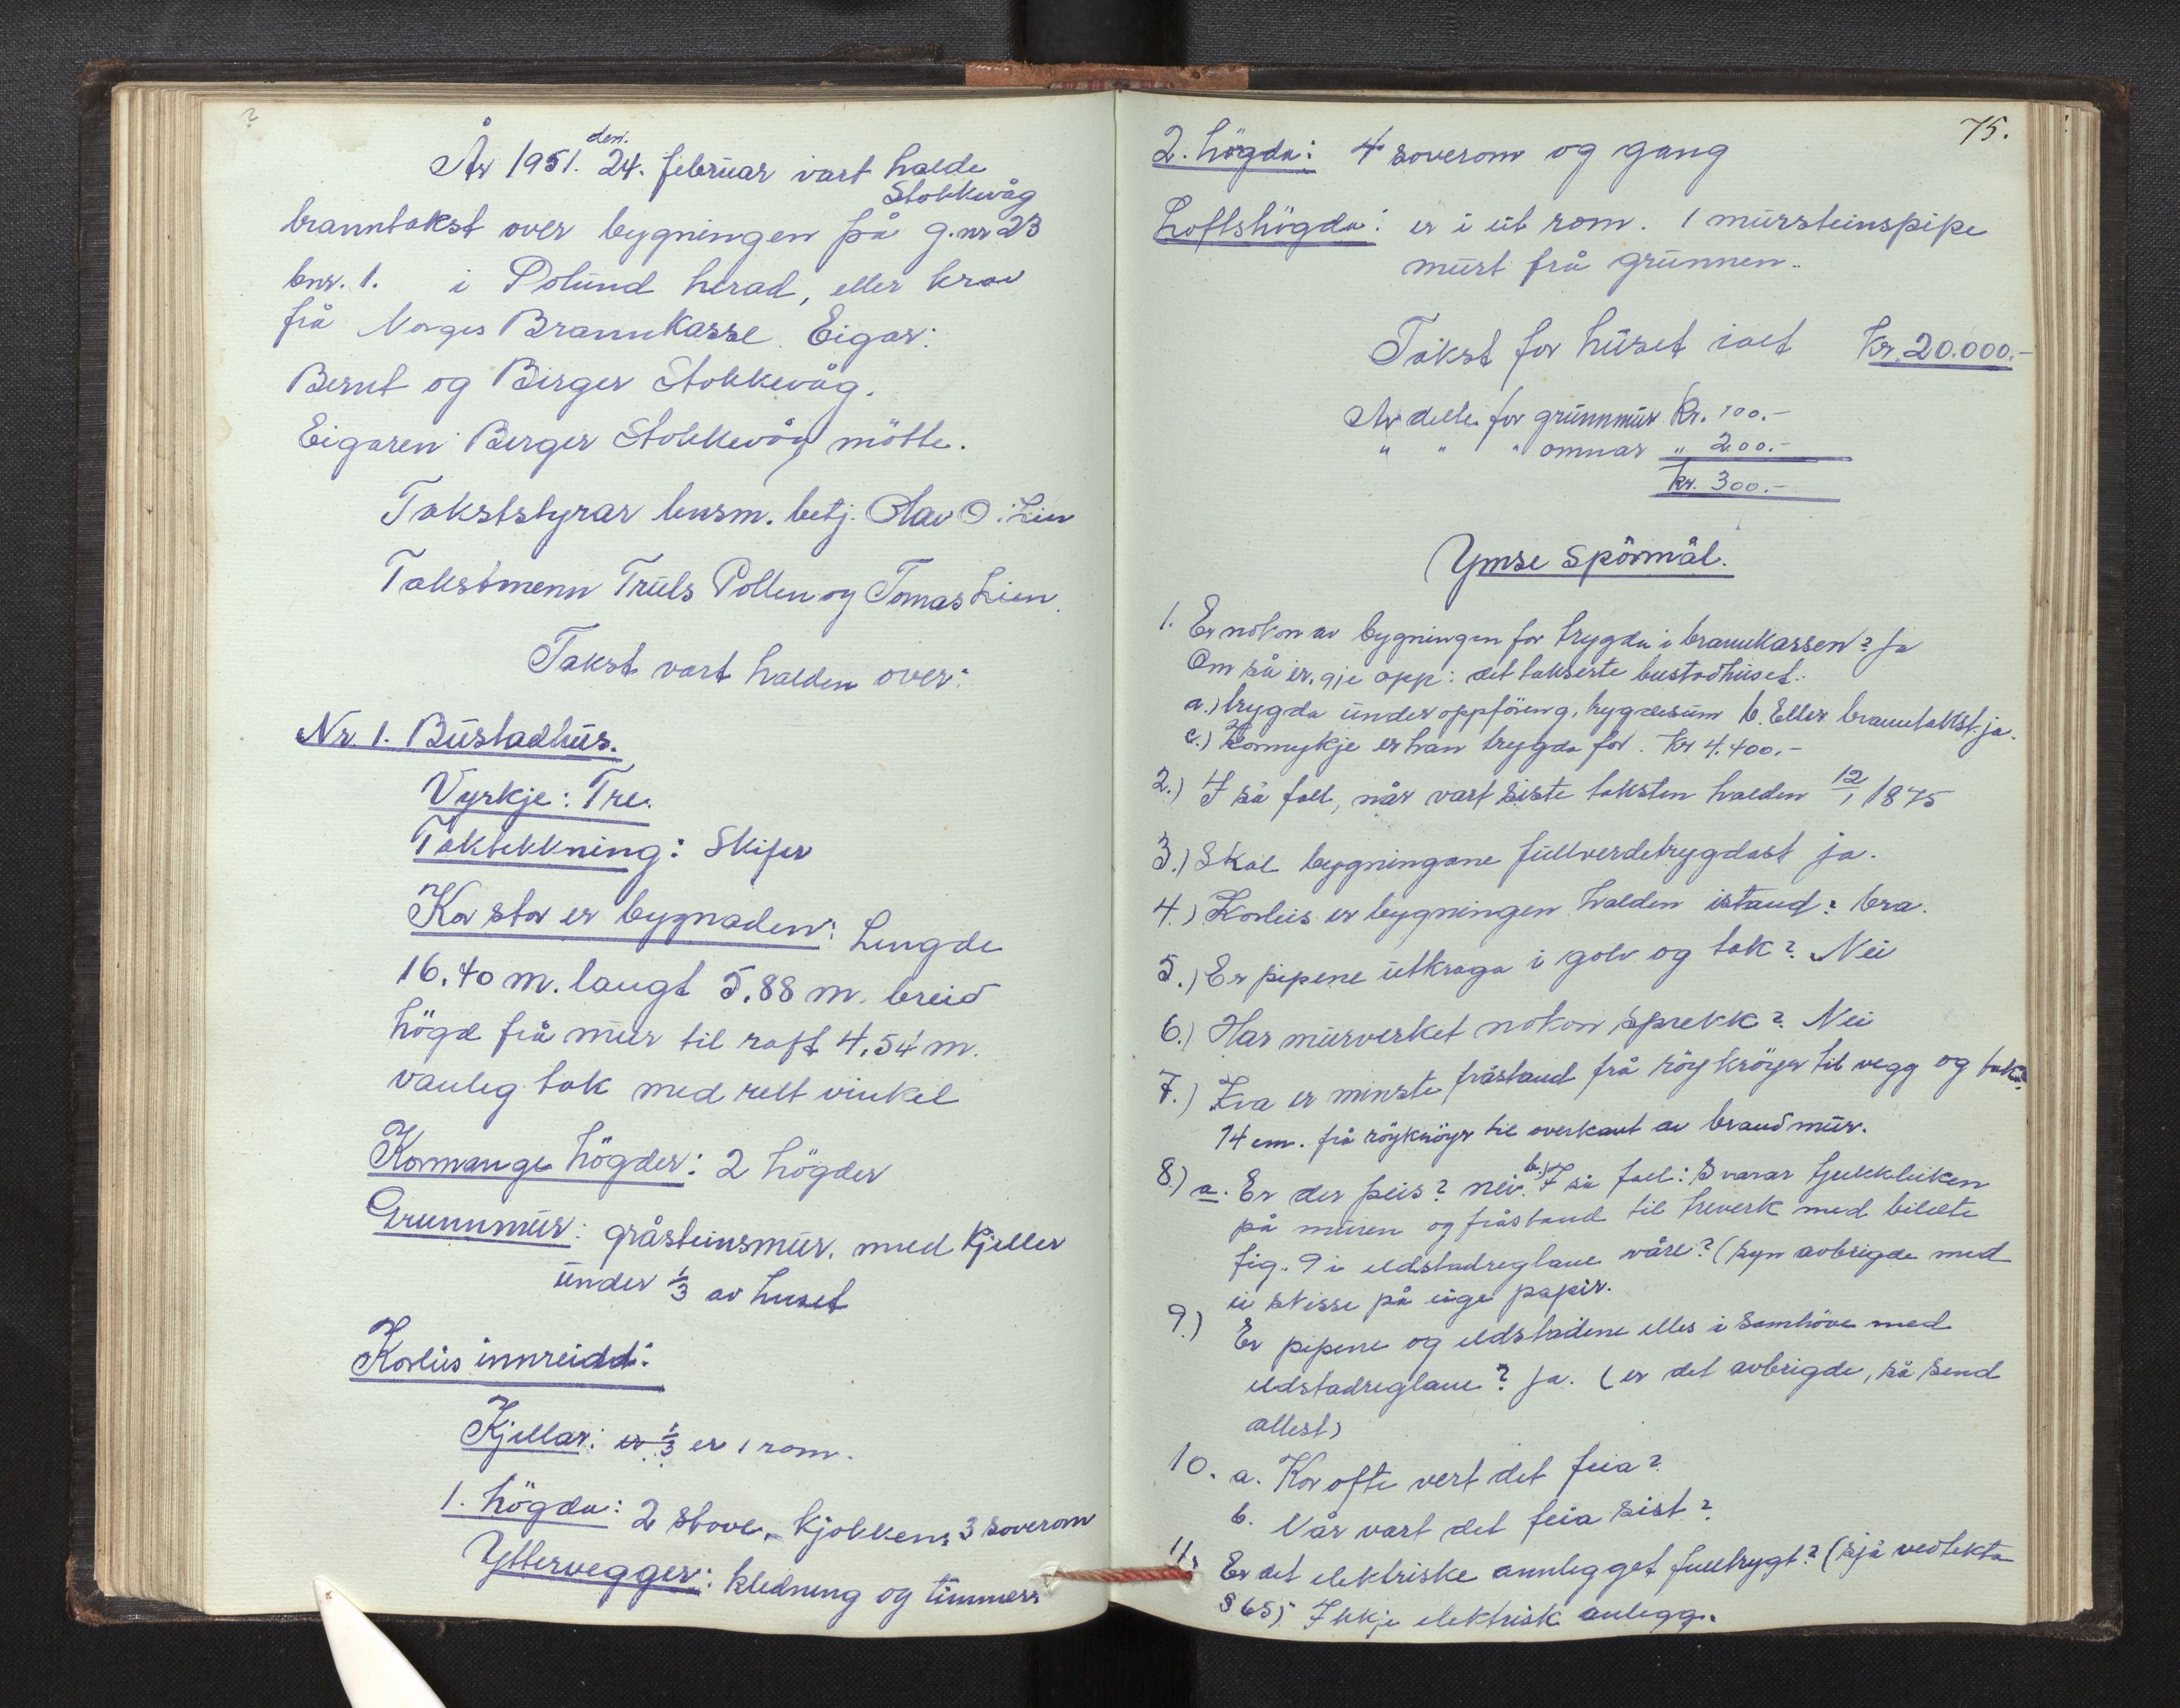 År 1951. den 24. februar vart halde
branntakst over bygningen på g.nr 23 Stokkevåg
bnr. 1. i Solund herad, etter krav
frå Norges Brannkasse. Eigar:
Bernt og Birger Stokkevåg.
Eigaren Berger Stokkevåg mötte.
Takststyrar lensm. betj. Olav O. Lien
Takstmenn Truls Pollen og Tomas Lien.
Takst vart halden over:
Nr. 1. Bustadhus.
Vyrkje: Tre.
Taktekkning: Skifer
Kor stor er bygnaden: Lengde
16.40 m. langt 5.88 m. breid
högd frå mur til raft 4.54 m.
vanleg tak med rett vinkel
Kormange högder: 2 högder
Grunnmur: gråsteinsmur. med kjeller
under 1/3 av huset
Korleis innreidd:
Kjellar: er 1/3 er 1 rom.
1. högda: 2 stove, kjökken, 3 soverom
Yttervegger: kledning og timmers
75.
2. högda: 4 soverom og gang
Loftshögda: er i eit rom. 1 mursteinspipe
murt frå grunnen.
Takst for huset ialt kr. 20.000.-
Av dette for grunnmur kr. 100.-
" " " omnar " 200.-
kr. 300.-
Ymse Spörmål.
1. Er nokon av bygningen for trygda i brannkassen? Ja
Om så er, gje opp: det takserte bustadhuset.
a.) trygda under oppföring, trygdesum b. Etter branntakst. ja.
c.) Kormykje er han trygda for. Kr 4.400.-
2.) I så fall, når vart siste taksten halden 12/1 1875
3.) Skal bygningane fullverdetrygdast ja.
4.) Korleis er bygningen halden istand? bra.
5.) Er pipene utkraga i golv og tak? Nei
6.) Har murverket nokon sprekk? Nei
7.) Kva er minste fråstand frå röykröyr til vegg og tak?
74 cm. frå röykröyr til overkant av brandmur.
8.) a. Er der peis? nei. b.) I så fall: Svarar tjukkleiken
på muren og fråstand til treverk med bilete
fig. 9 i eldstadreglane våre? (syn avbrigde med
ei skisse på eige papir.
9.) Er pipene og eldstadene elles i samhöve med
eldstadreglane? Ja. (er det avbrigde, så send
attest)
10. a. Kor ofte vert det feia?
b. Når vart det feia sist?
11. Er det elektriske annlegget fulltrygt? (sjå vedtekta
§ 65) Ikkje elektrisk anlegg.